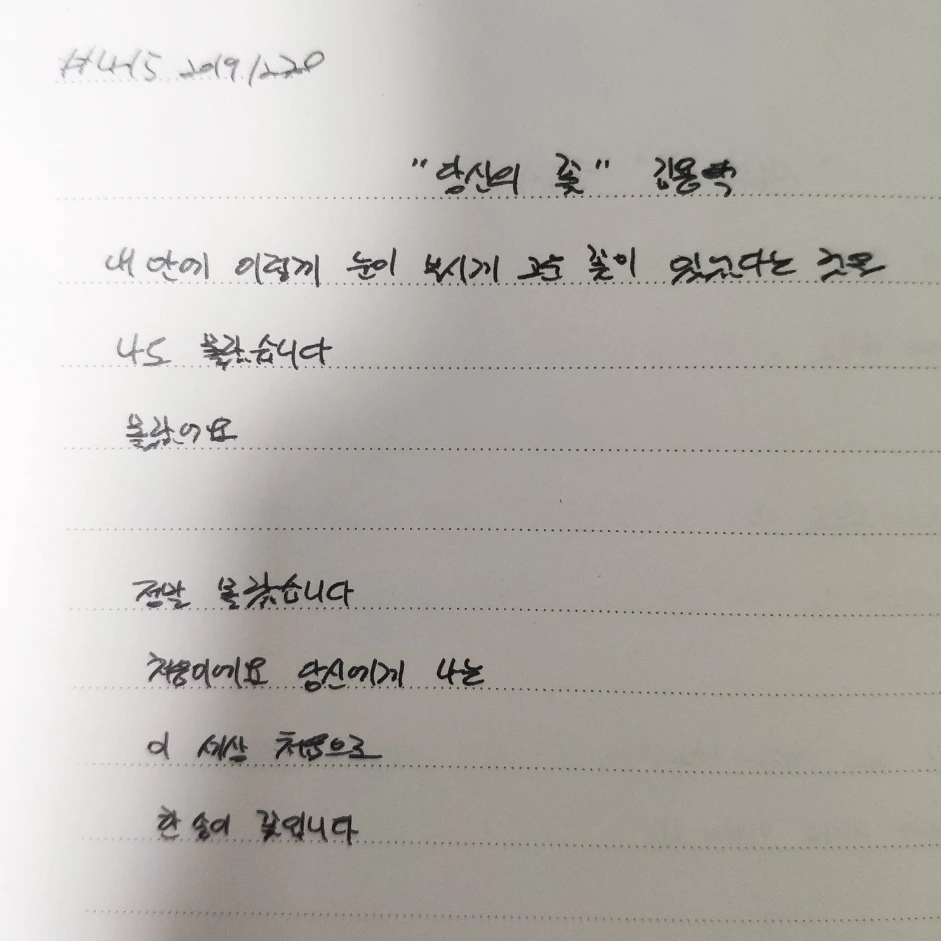 #415 2019/220
"당신의 꽃" 김용택
내 안에 이렇게 눈이 부시게 고운 꽃이 있었다는 것을
나도 몰랐습니다
몰랐어요
정말 몰랐습니다
처음이에요 당신에게 나는
이 세상 처음으로
한 송이 꽃입니다